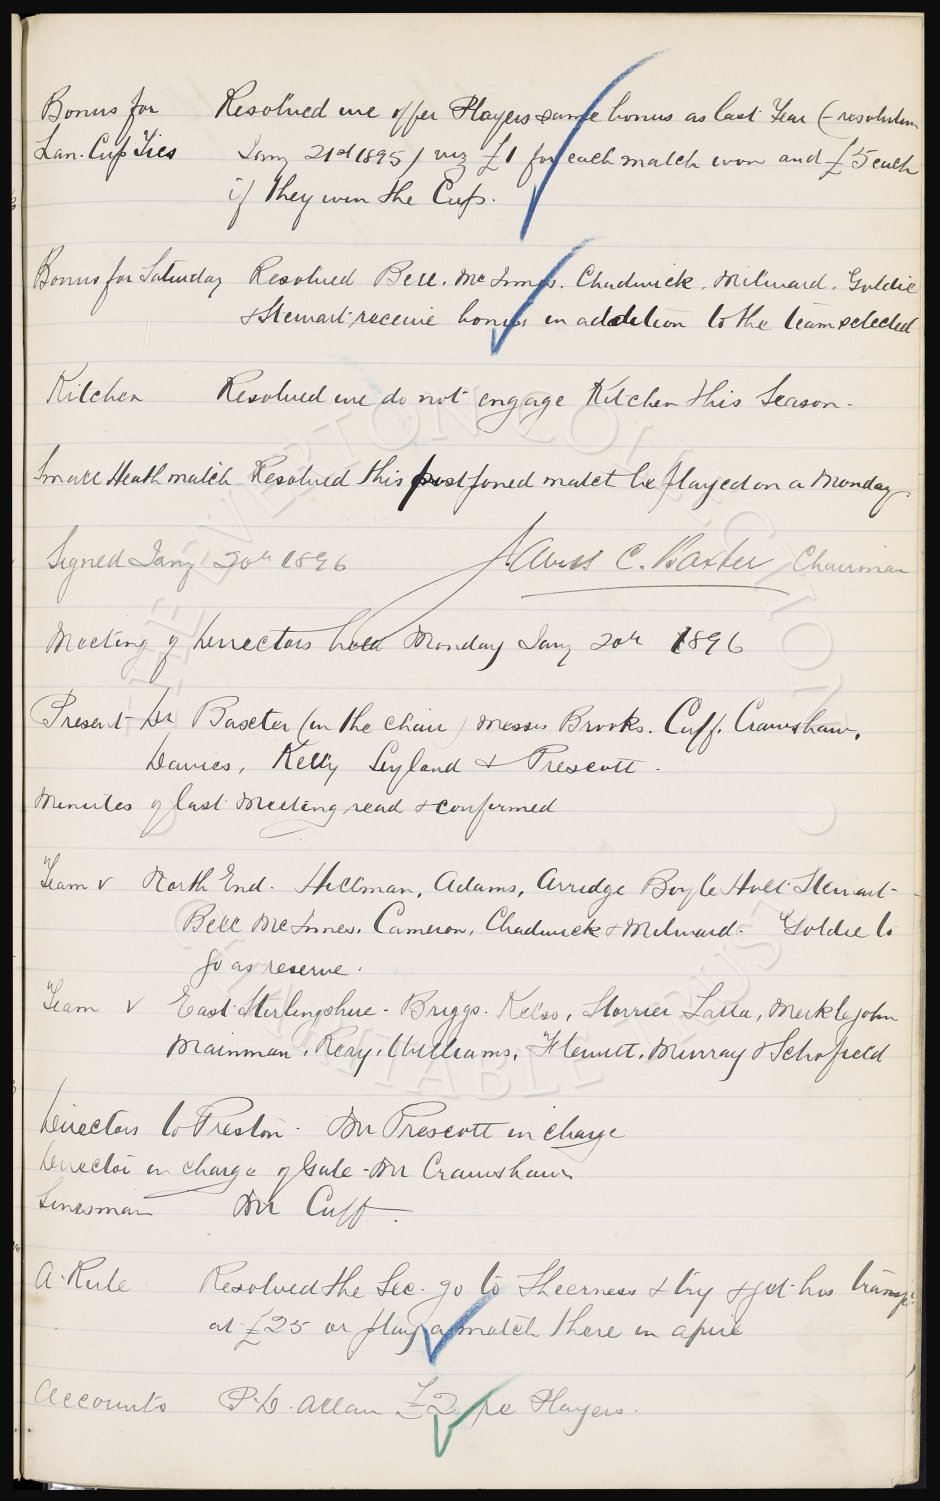 Bonus for Resolved we offer Players same bonus as last Year (resolution
Lan. Cup Ties Jany 21st 1895) viz £1 for each match won and £5 each
if they win the Cup.
Bonus for Saturday Resolved Bell. McInnes. Chadwick. Milward. Goldie
& Stewart receive bonus in addition to the team selected
Kitchen Resolved we do not engage Kitchen this Season.
Small Heath match Resolved this postponed match be played on a Monday.
Signed Jany 20th 1896 James C. Baxter Chairman
Meeting of Directors held Monday Jany 20th 1896
Present Dr Baxter (in the chair) Messrs Brooks. Cuff. Crawshaw,
Davies, Kelly Leyland & Prescott.
Minutes of last Meeting read & confirmed
Team v North End. Hillman, Adams, Arridge Boyle Holt Stewart
Bell McInnes. Cameron, Chadwick & Milward. Goldie to
go as reserve.
Team v East Stirlingshire - Briggs. Kelso, Storrier Latta, Meiklejohn
Mainman, Reay, Williams, Hewitt, Murray & Schofield
Directors to Preston. Mr Prescott in charge
Director in charge of Gate - Mr Crawshaw
Linesman Mr Cuff.
A. Rule Resolved the Sec. go to Sheerness & try & get his transfer
at £25 or play a match there in april
Accounts P. D. Allan £2 re Players.
THE EVERTON COLLECTION
CHARITABLE TRUST